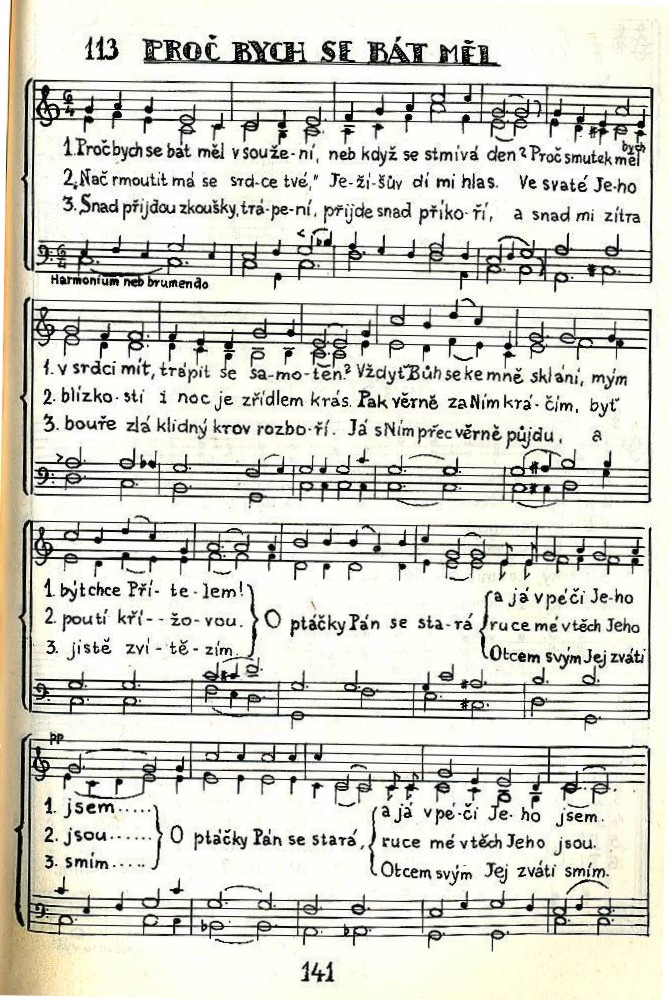 113 PROČ BYCH SE BÁT MĚL
6/4
1. Proč bych se bát měl v souže-ní, neb když se stmívá den? Proč smutek měl bych
2. „Nač rmoutit má se srd-ce tvé," Je-ží-šův dí mi hlas. Ve svaté Je-ho
3. Snad přijdou zkoušky, trá-pe-ní, přijde snad příko-ří, a snad mi zítra
6/4
Harmonium neb brumendo
1. v srdci mít, trápit se sa-mo-ten? Vždyť Bůh se ke mně sklání, mým
2. blízko-sti i noc je zřídlem krás. Pak věrně za Ním krá-čím, byť
3. bouře zlá klidný krov rozbo-ří. Já s Ním přec věrně půjdu, a
1. být chce Pří-te-lem!
2. poutí kří--žo-vou.
3. jistě zví-tě-zím.
O ptáčky Pán se sta-rá
a já v péči Je-ho
ruce mé v těch Jeho
Otcem svým Jej zváti
pp
1. jsem.....
2. jsou......
3. smím.....
O ptáčky Pán se stará,
a já v pé-či Je-ho jsem.
ruce mé v těch Jeho jsou.
Otcem svým Jej zváti smím.
141